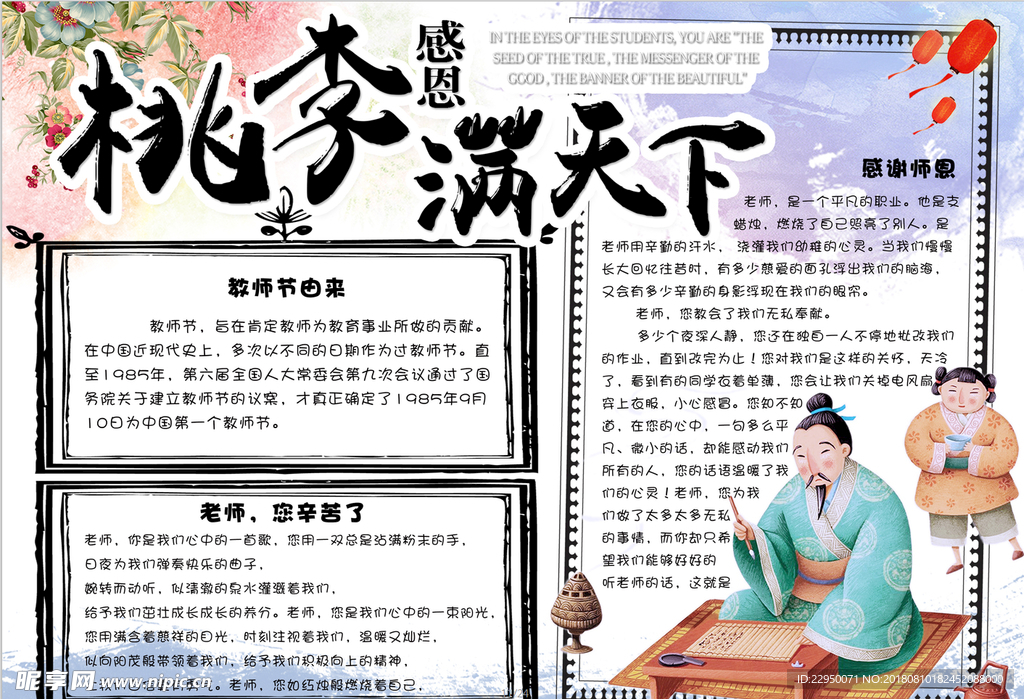 桃李满天下
感恩
IN THE EYES OF THE STUDENTS, YOU ARE "THE
SEED OF THE TRUE , THE MESSENGER OF THE
GOOD , THE BANNER OF THE BEAUTIFUL"
教师节由来
教师节，旨在肯定教师为教育事业所做的贡献。
在中国近现代史上，多次以不同的日期作为过教师节。直
至1985年，第六届全国人大常委会第九次会议通过了国
务院关于建立教师节的议案，才真正确定了1985年9月
10日为中国第一个教师节。
老师，您辛苦了
老师，你是我们心中的一首歌，您用一双总是沾满粉末的手，
日夜为我们弹奏快乐的曲子，
婉转而动听，似清澈的泉水灌溉着我们，
给予我们茁壮成长成长的养分。老师，您是我们心中的一束阳光，
您用满含着慈祥的目光，时刻注视着我们，温暖又灿烂，
似向阳花般带领着我们，给予我们积极向上的精神，
老师，您如红烛般燃烧着自己，
感谢师恩
老师，是一个平凡的职业。他是支
蜡烛，燃烧了自己照亮了别人。是
老师用辛勤的汗水，浇灌我们幼稚的心灵。当我们慢慢
长大回忆往昔时，有多少慈爱的面孔浮出我们的脑海，
又会有多少辛勤的身影浮现在我们的眼帘。
老师，您教会了我们无私奉献。
多少个夜深人静，您还在独自一人不停地批改我们
的作业，直到改完为止！您对我们是这样的关怀，天冷
了，看到有的同学衣着单薄，您会让我们关掉电风扇
穿上衣服，小心感冒。您知不知
道，在您的心中，一句多么平
凡、微小的话，却能感动我们
所有的人，您的话语温暖了我
们的心灵！老师，您为我
们做了太多太多无私
的事情，而你却只希
望我们能够好好的
听老师的话，这就是
昵享网 www.nipic.cn
ID:22950071 NO:20180810182452088000